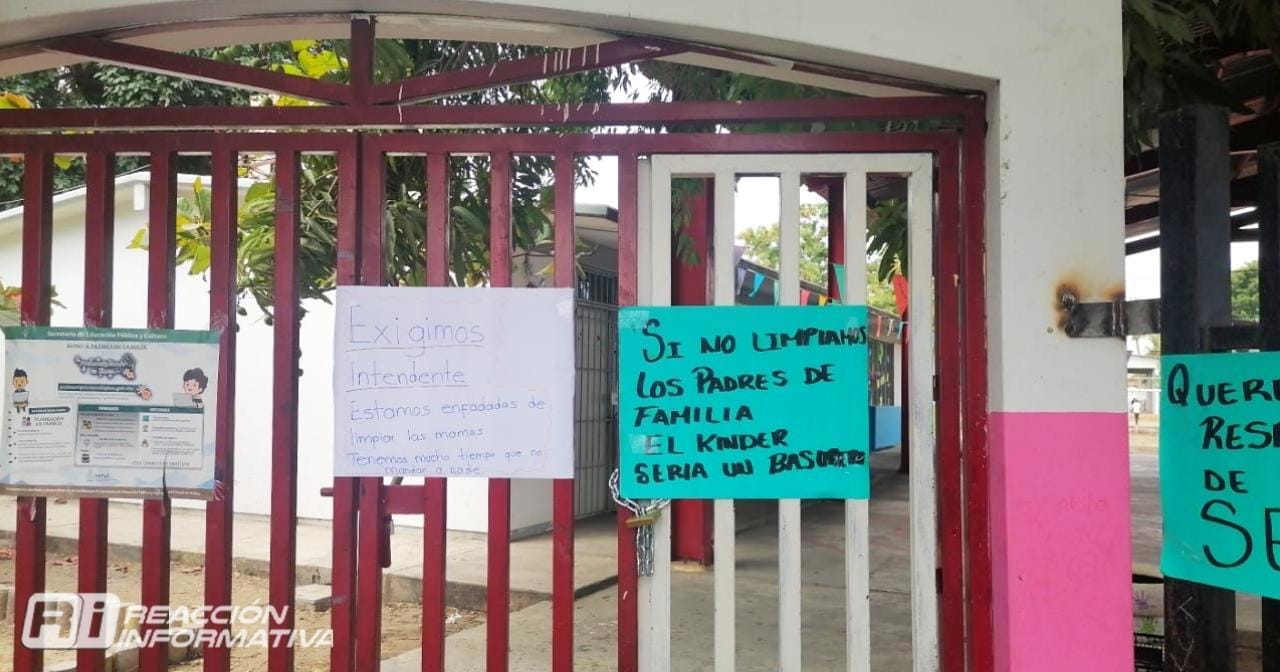 Secretaría de Educación Pública y Cultura
AVISO A PADRES DE FAMILIA
Exigimos
Intendente
Estamos enfadadas de
limpiar las mamas
Tenemos mucho tiempo que no
mandan a nadie
SI NO LIMPIAMOS
LOS PADRES DE
FAMILIA
EL KINDER
SERIA UN BASURERO
QUERE
RES
DE
SE
Ri REACCIÓN
INFORMATIVA